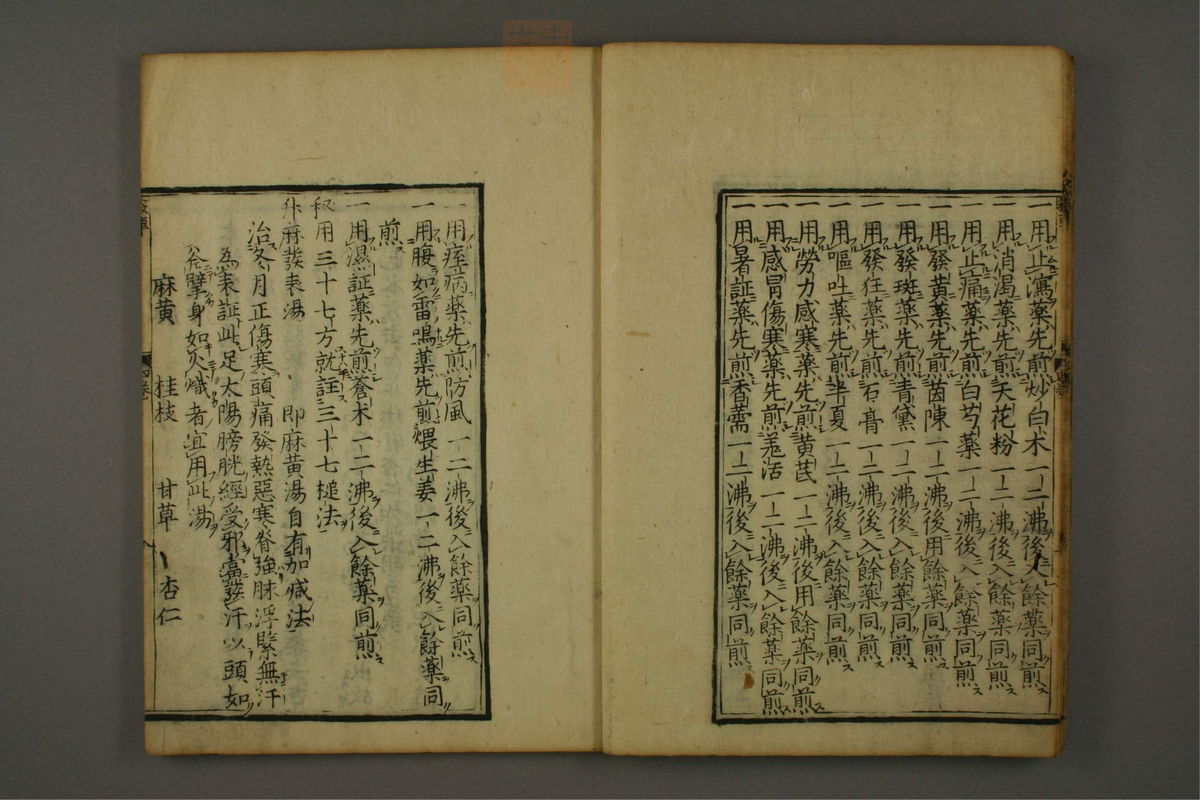 一用止瀉薬先煎炒白朮一二沸後入餘薬同煎
一用消渇薬先煎天花粉一二沸後入餘薬同煎
一用止痛薬先煎白芍薬一二沸後入餘薬同煎
一用發黄薬先煎茵陳一二沸後用餘薬同煎
一用發斑薬先煎青黛一二沸後入餘薬同煎
一用發狂薬先煎石膏一二沸後入餘薬同煎
一用嘔吐薬先煎半夏一二沸後入餘薬同煎
一用勞力感寒薬先煎黄芪一二沸後用餘薬同煎
一用感冒傷寒薬先煎羗活一二沸後入餘薬同煎
一用暑証薬先煎香薷一二沸後入餘薬同煎
一用痓病薬先煎防風一二沸後入餘薬同煎
一用腹如雷鳴薬先煎煨生姜一二沸後入餘薬同
煎
一用濕証薬先煎蒼朮一二沸後入餘薬同煎
秘用三十七方就註三十七槌法
升麻發表湯 即麻黄湯自有加减法
治冬月正傷寒頭痛發熱惡寒脊強脉浮緊無汗
為表証此足太陽膀胱經受邪當發汗以頭如
斧劈身如火熾者宜用此湯
麻黄 桂枝 甘草 杏仁
四巻